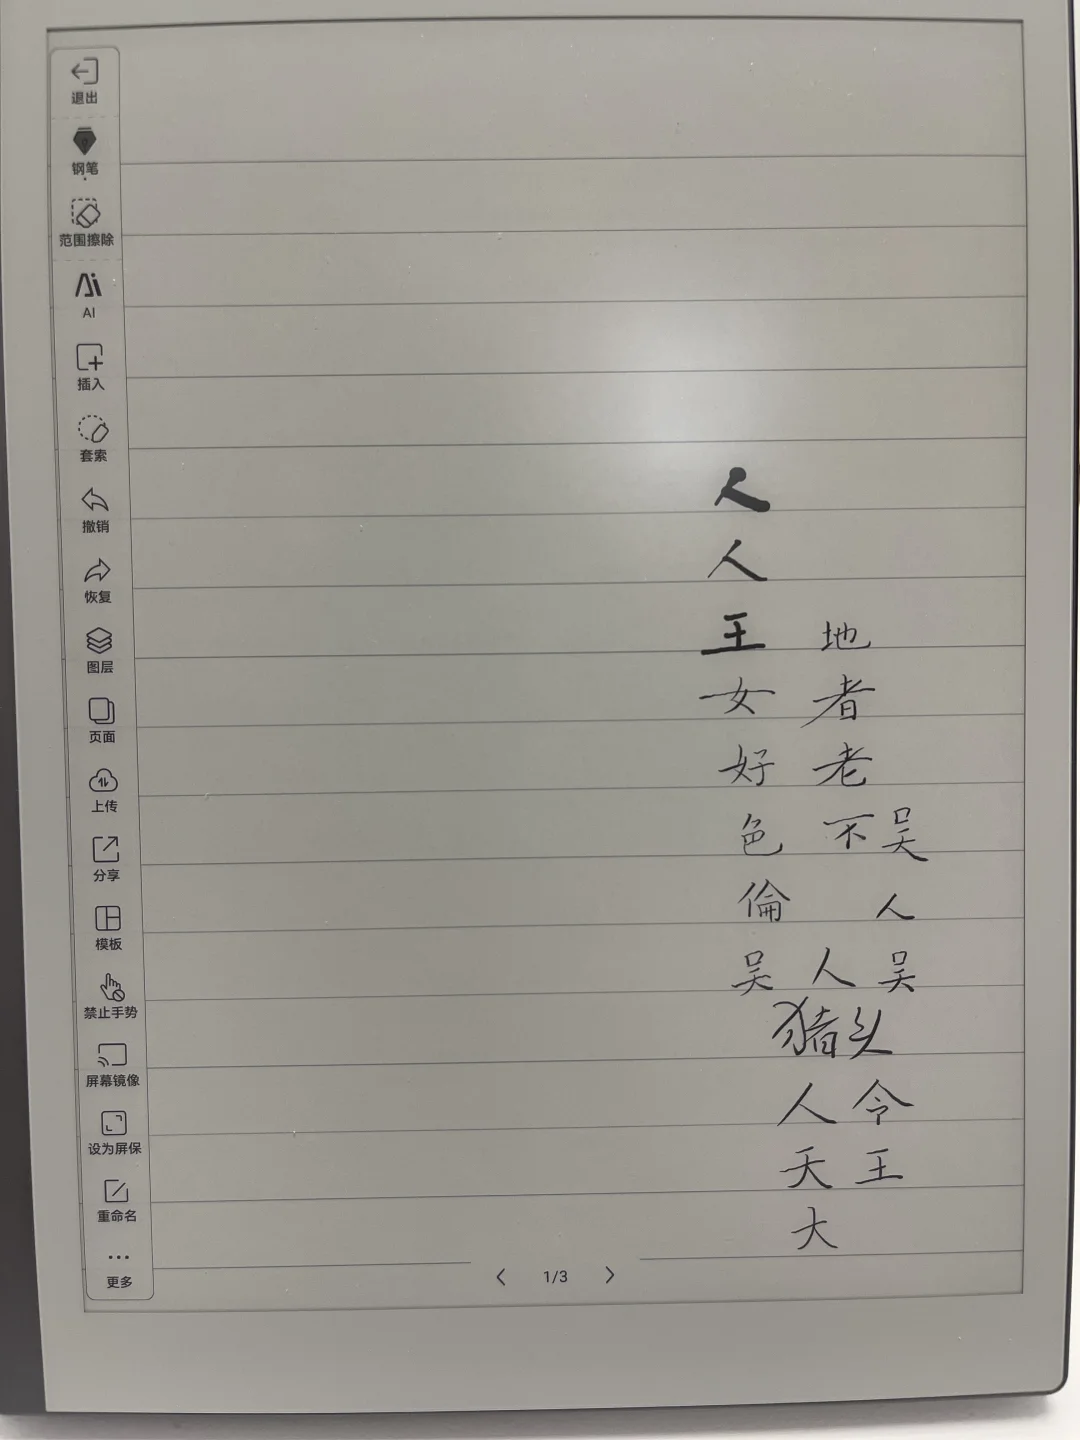 退出
钢笔
范围擦除
AI
插入
套索
撤销
恢复
图层
页面
上传
分享
模板
禁止手势
屏幕镜像
设为屏保
重命名
更多
人
人
王 地
女 者
好 老
色 不 吴
倫 人
吴 人 吴
猪头
人 令
天 王
大
1/3